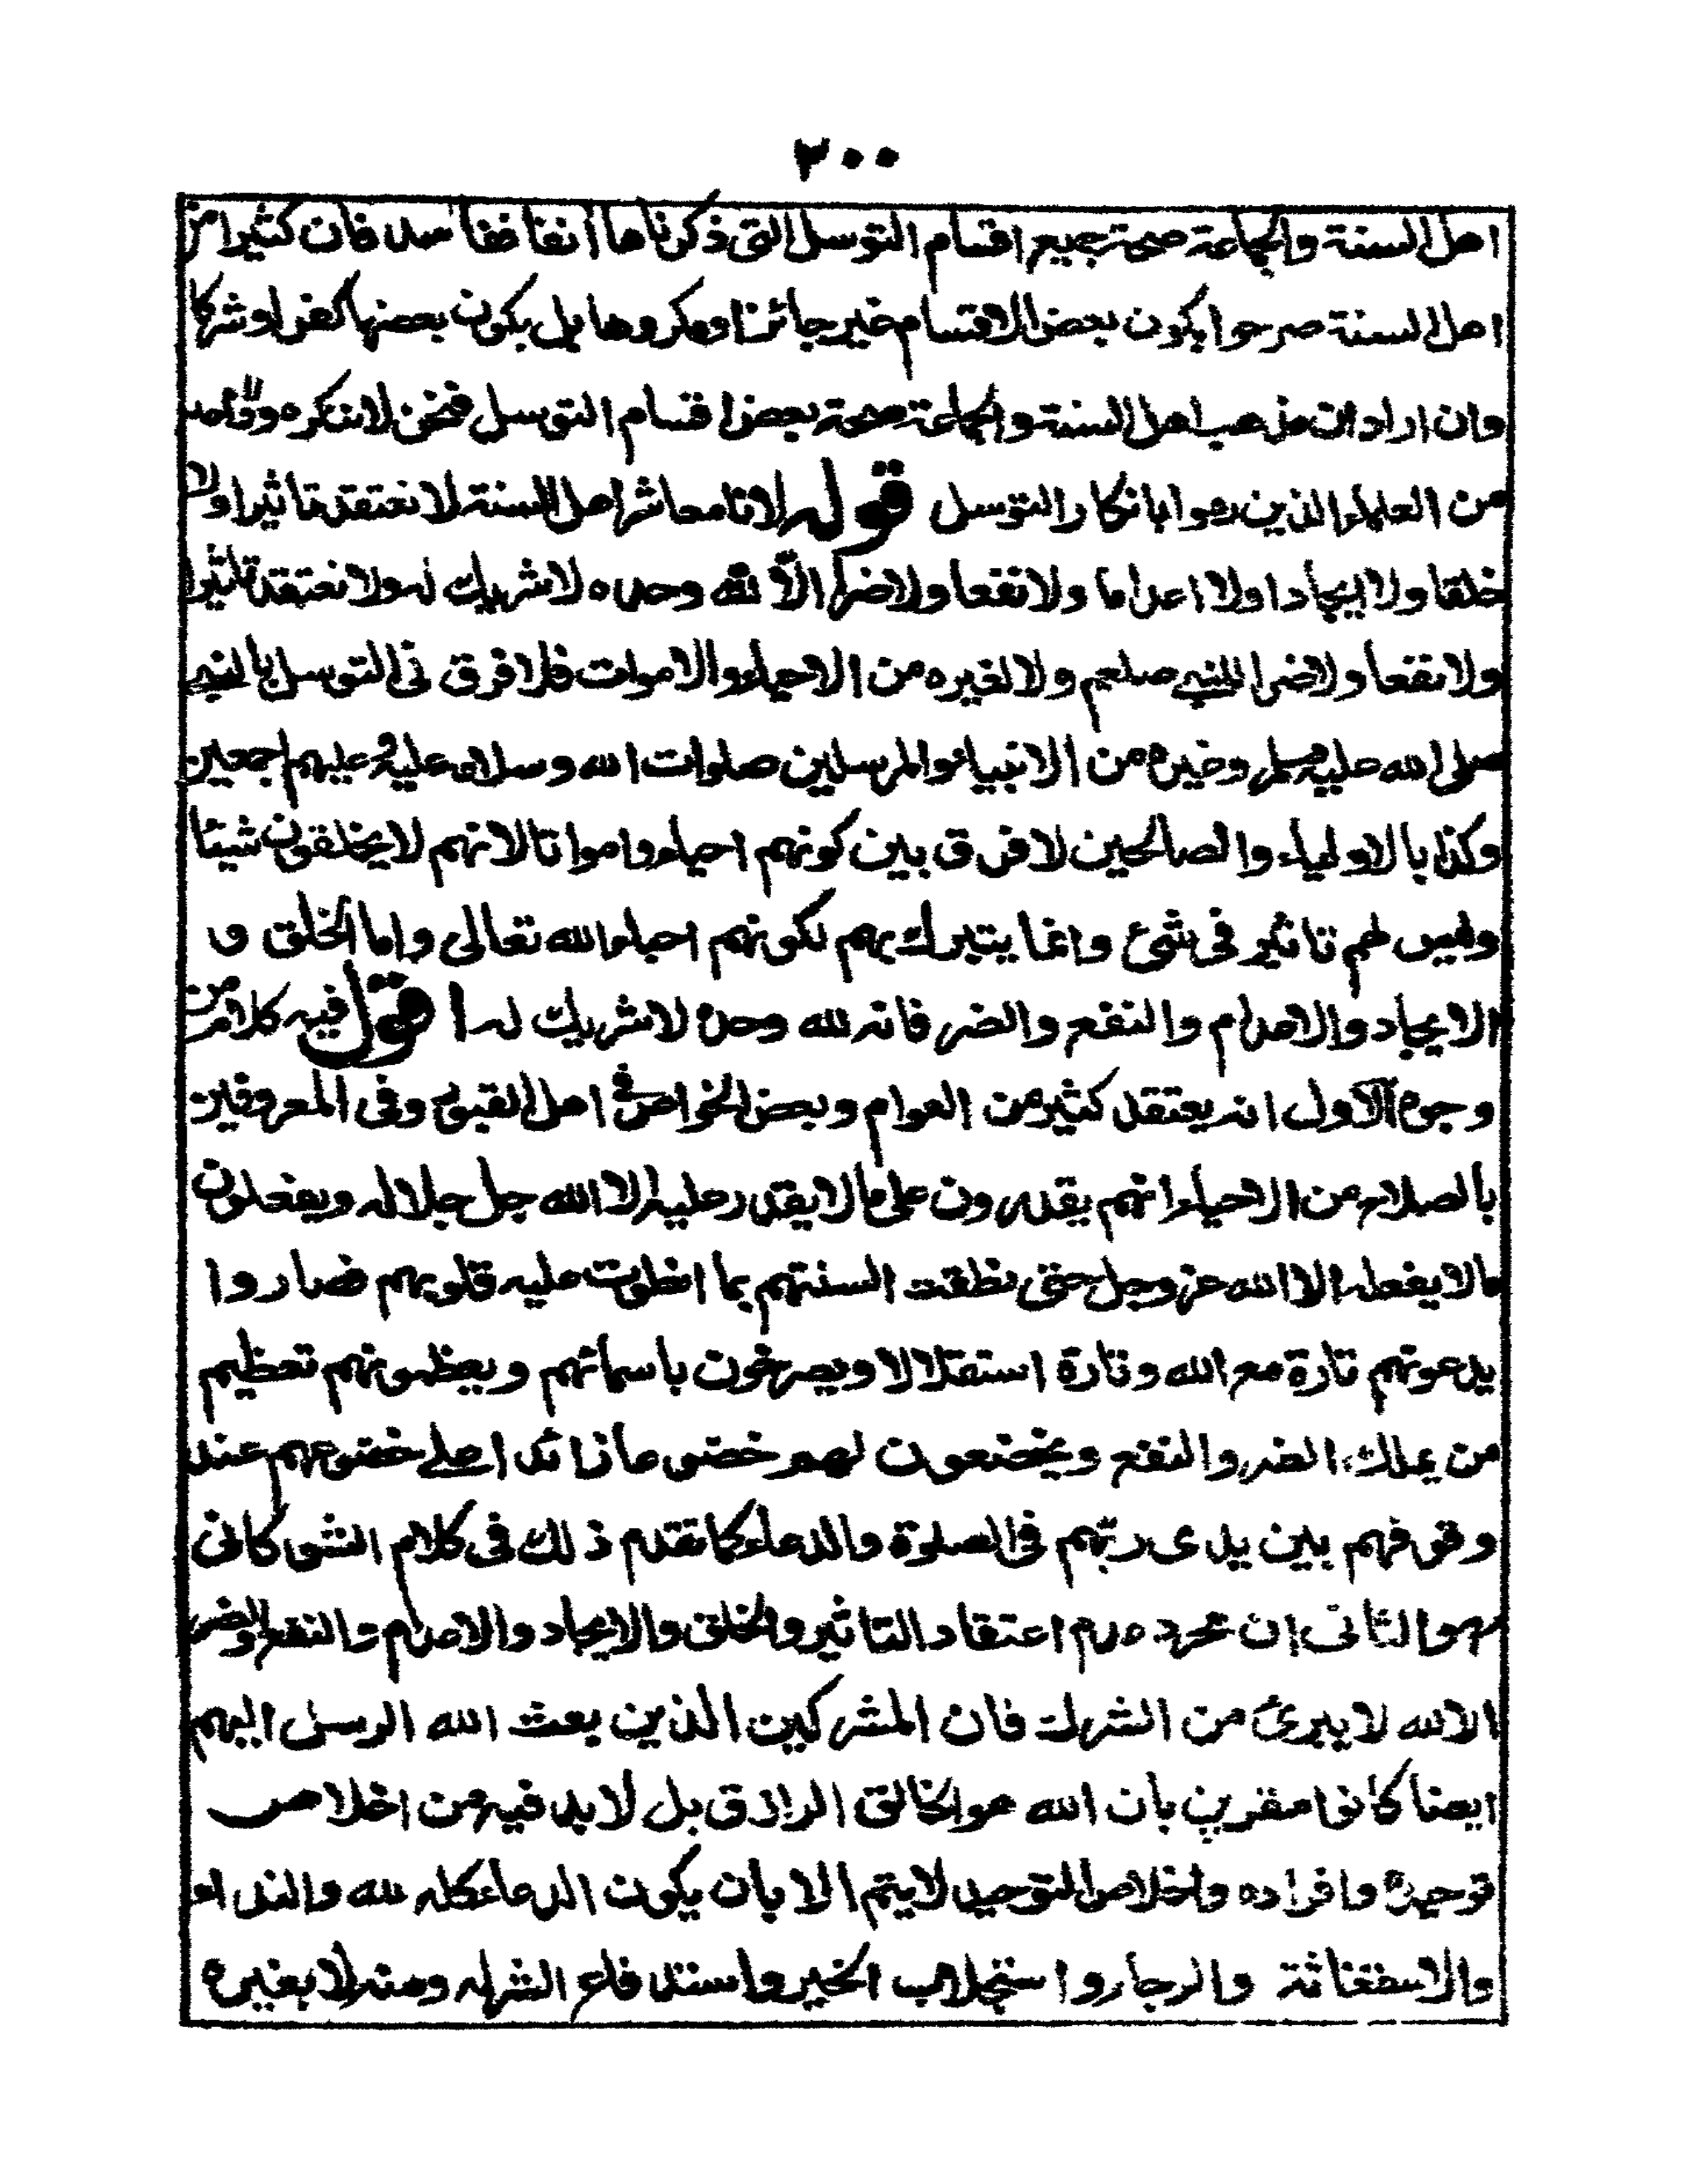 ٢٠٠
اهل السنة والجماعة صحة جميع اقسام التوسل التى ذكرناها آنفا ففاسد فان كثيرا من
اهل السنة صرحوا بكون بعض الاقسام غير جائز او مكروها بل بكون بعضها كفرا وشركا
وان اراد ان مذهب اهل السنة والجماعة صحة بعض اقسام التوسل فنحن لا ننكره ولا احد
من العلماء الذين رموا بانكار التوسل قوله لانا معاشر اهل السنة لا نعتقد تاثيرا ولا
خلقا ولا ايجادا ولا اعداما ولا نفعا ولا ضرا الا لله وحده لا شريك له ولا نعتقد تاثيرا
ولا نفعا ولا ضرا للنبى صلعم ولا لغيره من الاحياء والاموات فلا فرق فى التوسل بالنبى
صلى الله عليه وسلم وغيره من الانبياء والمرسلين صلوات الله وسلامه عليه وعليهم اجمعين
وكذا بالاولياء والصالحين لا فرق بين كونهم احياء وامواتا لانهم لا يخلقون شيئا
وليس لهم تاثير فى شئ وانما يتبرك بهم لكونهم احباء الله تعالى واما الخلق و
الايجاد والاعدام والنفع والضر فانه لله وحده لا شريك له اقول فيه كلام من
وجوه الاول انه يعتقد كثير من العوام وبعض الخواص فى اهل القبور وفى المعروفين
بالصلاح من الاحياء انهم يقدرون على ما لا يقدر عليه الا الله جل جلاله ويفعلون
ما لا يفعله الا الله عز وجل حتى نطقت السنتهم بما انطوت عليه قلوبهم فصاروا
يدعونهم تارة مع الله وتارة استقلالا ويصرخون باسمائهم ويعظمونهم تعظيم
من يملك الضر والنفع ويخضعون لهم خضوعا زائدا على خضوعهم عند
وقوفهم بين يدى ربهم فى الصلوة والدعاء كما تقدم ذلك فى كلام الشوكانى
والثانى ان مجرد عدم اعتقاد التاثير والخلق والايجاد والاعدام والنفع والضر
الا لله لا يبرئ من الشرك فان المشركين الذين بعث الله الرسل اليهم
ايضا كانوا مقرين بان الله هو الخالق الرازق بل لا بد فيه من اخلاص
توحيده وافراده واخلاص التوحيد لا يتم الا بان يكون الدعاء كله لله والنداء
والاستغاثة والرجاء واستجلاب الخير واستدفاع الشر له ومنه لا بغيره